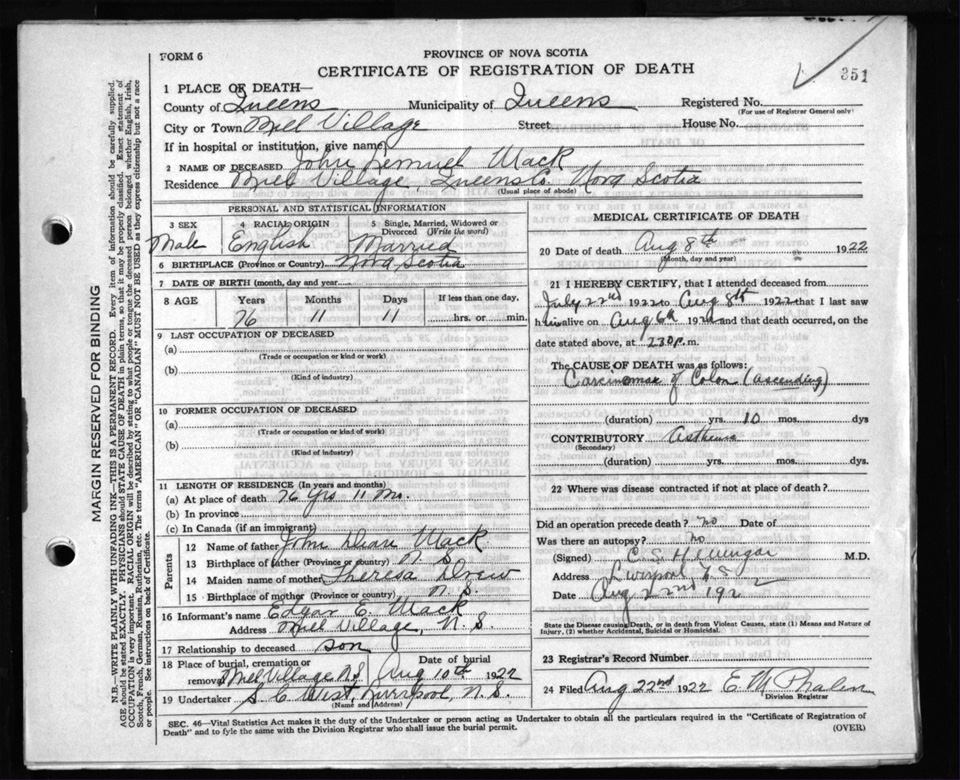 FORM 6
PROVINCE OF NOVA SCOTIA
CERTIFICATE OF REGISTRATION OF DEATH
351
1 PLACE OF DEATH—
County of Queens Municipality of Queens Registered No.
(For use of Registrar General only)
City or Town Mill Village Street House No.
If in hospital or institution, give name
2 NAME OF DECEASED John Lemuel Mack
Residence Mill Village, Queens Co. Nova Scotia
(Usual place of abode)
PERSONAL AND STATISTICAL INFORMATION
3 SEX 4 RACIAL ORIGIN 5 Single, Married, Widowed or Divorced (Write the word)
Male English Married
6 BIRTHPLACE (Province or Country) Nova Scotia
7 DATE OF BIRTH (month, day and year)
8 AGE Years Months Days If less than one day,
76 11 11 hrs. or min.
9 LAST OCCUPATION OF DECEASED
(a)
(Trade or occupation or kind or work)
(b)
(Kind of industry)
10 FORMER OCCUPATION OF DECEASED
(a)
(Trade or occupation or kind or work)
(b)
(Kind of industry)
11 LENGTH OF RESIDENCE (In years and months)
(a) At place of death 76 yrs 11 Mo.
(b) In province
(c) In Canada (if an immigrant)
Parents
12 Name of father John Doare Mack
13 Birthplace of father (Province or country) N S
14 Maiden name of mother Theresa Drew
15 Birthplace of mother (Province or country) N. S.
16 Informant's name Edgar E. Mack
Address Mill Village, N. S.
17 Relationship to deceased son
18 Place of burial, cremation or removal Mill Village N.S Date of burial Aug 10th 1922
19 Undertaker S. C. West Liverpool, N. S.
(Name and Address)
MEDICAL CERTIFICATE OF DEATH
20 Date of death Aug 8th 1922
(Month, day and year)
21 I HEREBY CERTIFY, that I attended deceased from
July 22nd 1922 to Aug 8th 1922 that I last saw
him alive on Aug 6th 1922 and that death occurred, on the
date stated above, at 2.30 P. m.
The CAUSE OF DEATH was as follows:
Carcinomae of Colon (ascending)
(duration) yrs. 10 mos. dys
CONTRIBUTORY Asthma
(Secondary)
(duration) yrs. mos. dys.
22 Where was disease contracted if not at place of death?
Did an operation precede death? no Date of
Was there an autopsy? no
(Signed) C. S. M.D.
Address Liverpool N.S
Date Aug 22nd 1922
State the Disease causing Death, or in death from Violent Causes, state (1) Means and Nature of
Injury, (2) whether Accidental, Suicidal or Homicidal.
23 Registrar's Record Number
24 Filed Aug 22nd 1922 E. M. Phalen
Division Registrar
SEC. 46—Vital Statistics Act makes it the duty of the Undertaker or person acting as Undertaker to obtain all the particulars required in the "Certificate of Registration of
Death" and to fyle the same with the Division Registrar who shall issue the burial permit.
(OVER)
MARGIN RESERVED FOR BINDING
N.B.—WRITE PLAINLY WITH UNFADING INK—THIS IS A PERMANENT RECORD. Every item of information should be carefully supplied.
AGE should be stated EXACTLY. PHYSICIANS should STATE CAUSE OF DEATH in plain terms, so that it may be properly classified. Exact statement of
OCCUPATION is very important. RACIAL ORIGIN will be described by stating to what people or tongue the deceased person belonged whether English, Irish,
Scotch, French, German, Russian, Ruthenian, etc. The terms "AMERICAN" OR "CANADIAN" MUST NOT BE USED as they express citizenship but not a race
or people. See instructions on back of Certificate.